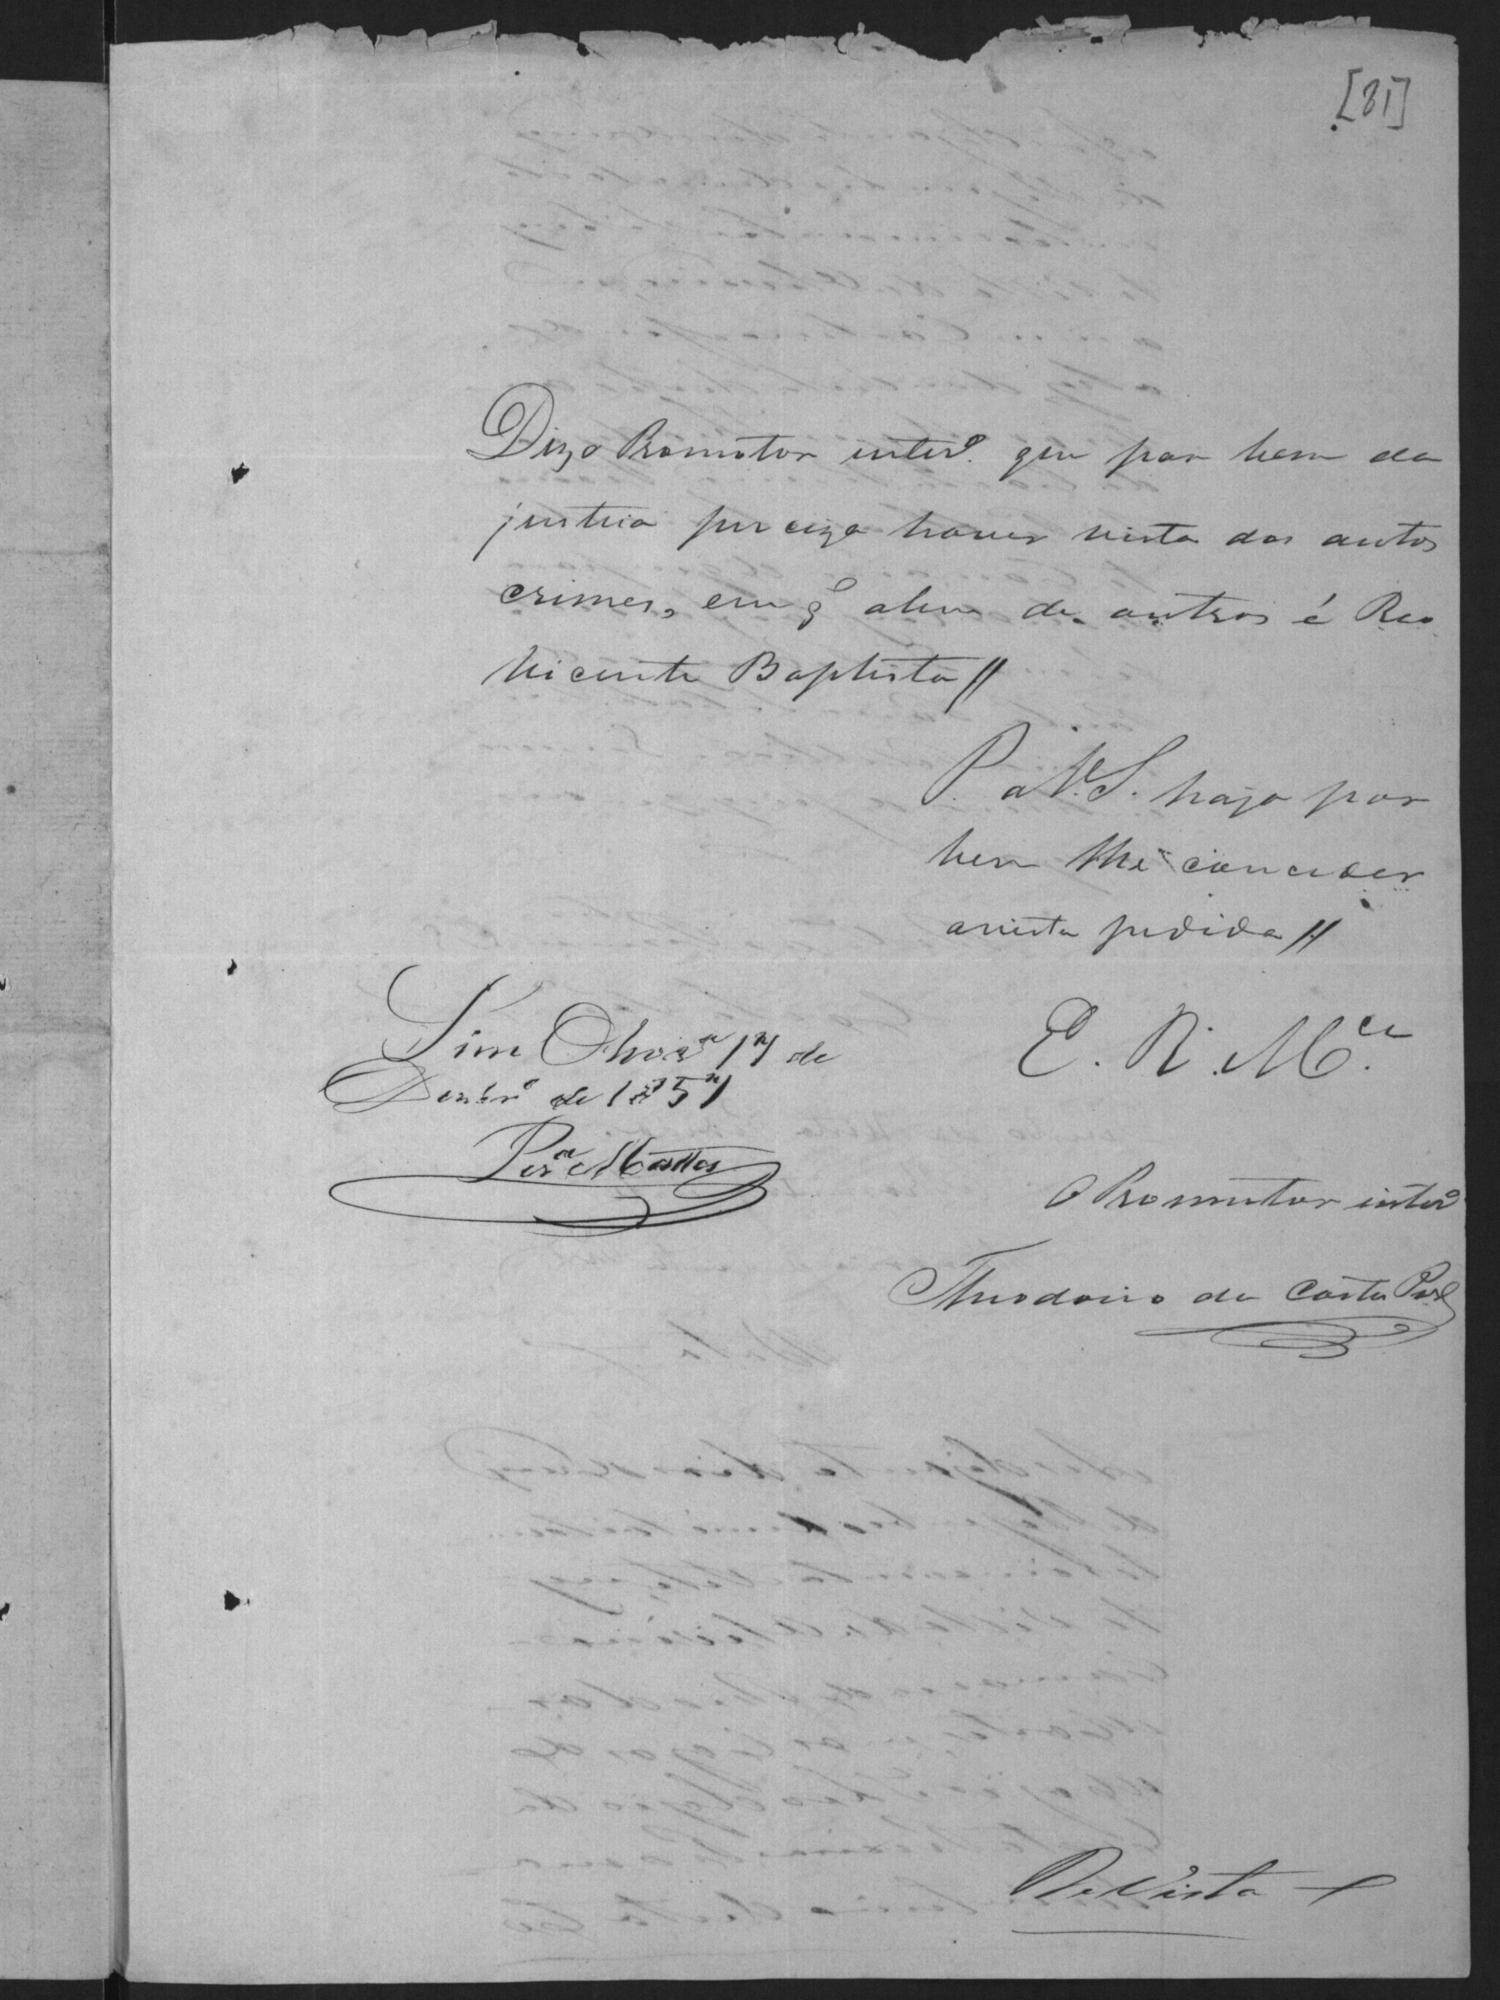 [81]
Diz o Promotor inter.o que por bem da
justica preciza haver vista dos autos
crimes, em q̃ alem de outros é Reo
Vicente Baptista//
P. a V.S. haja por
bem lhe conceder
avista pedida//
E. R. M.ce
Sim Olivr.a 17 de
Dezbr.o de 1857
Per.a Mattos
O Promutor inter.o
Theodoiro da Costa
De Vista